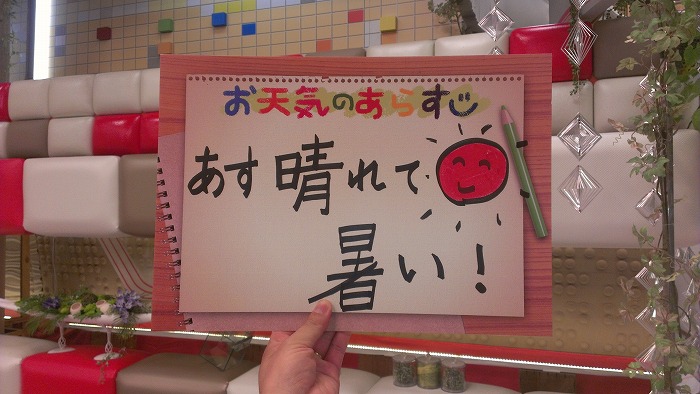 お天気のあらすじ
あす晴れて
暑い！